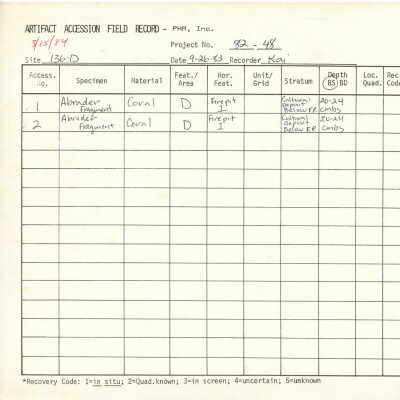 ARTIFACT ACCESSION FIELD RECORD - PHR, Inc.
8/15/84 Project No. 82-48
Site 136-D Date 9-26-83 Recorder Kai
Access. No. Specimen Material Feat./ Area Hor. Feat. Unit/ Grid Stratum Depth BS/BD Loc. Quad. Rec Code
1 Abrader Fragment Coral D Firepit 1 Cultural Deposit Below F.P. 20-24 cmbs
2 Abrader Fragment Coral D Firepit 1 Cultural Deposit Below F.P. 20-24 cmbs
*Recovery Code: 1=in situ; 2=Quad.known; 3=in screen; 4=uncertain; 5=unknown